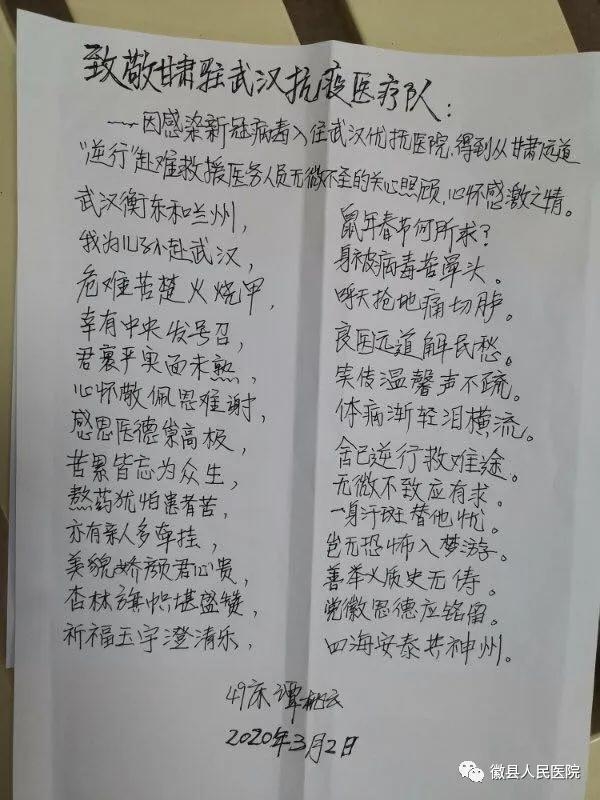 致敬甘肃驻武汉抗疫医疗队：
——因感染新冠病毒入住武汉优抚医院，得到从甘肃远道
"逆行"赴难救援医务人员无微不至的关心照顾，心怀感激之情。
武汉衡东和兰州，
鼠年春节何所求？
我为儿孙赴武汉，
身被病毒苦罩头。
危难苦楚火烧甲，
呼天抢地痛切胪。
幸有中央发号召，
良医远道解民愁。
君裹平实面未熟，
笑传温馨声不疏。
心怀敬佩恩难谢，
体病渐轻泪横流。
感恩医德崇高极，
舍己逆行救难途。
苦累皆忘为众生，
无微不致应有求。
熬药犹怕患者苦，
一身汗斑替他忧。
亦有亲人多牵挂，
岂无恐怖入梦游。
美貌娇颜君心贵，
善举义质史无俦。
杏林旗帜堪盛赞，
党徽恩德应铭留。
祈福玉宇澄清乐，
四海安泰共神州。
49床 谭
2020年3月2日
徽县人民医院